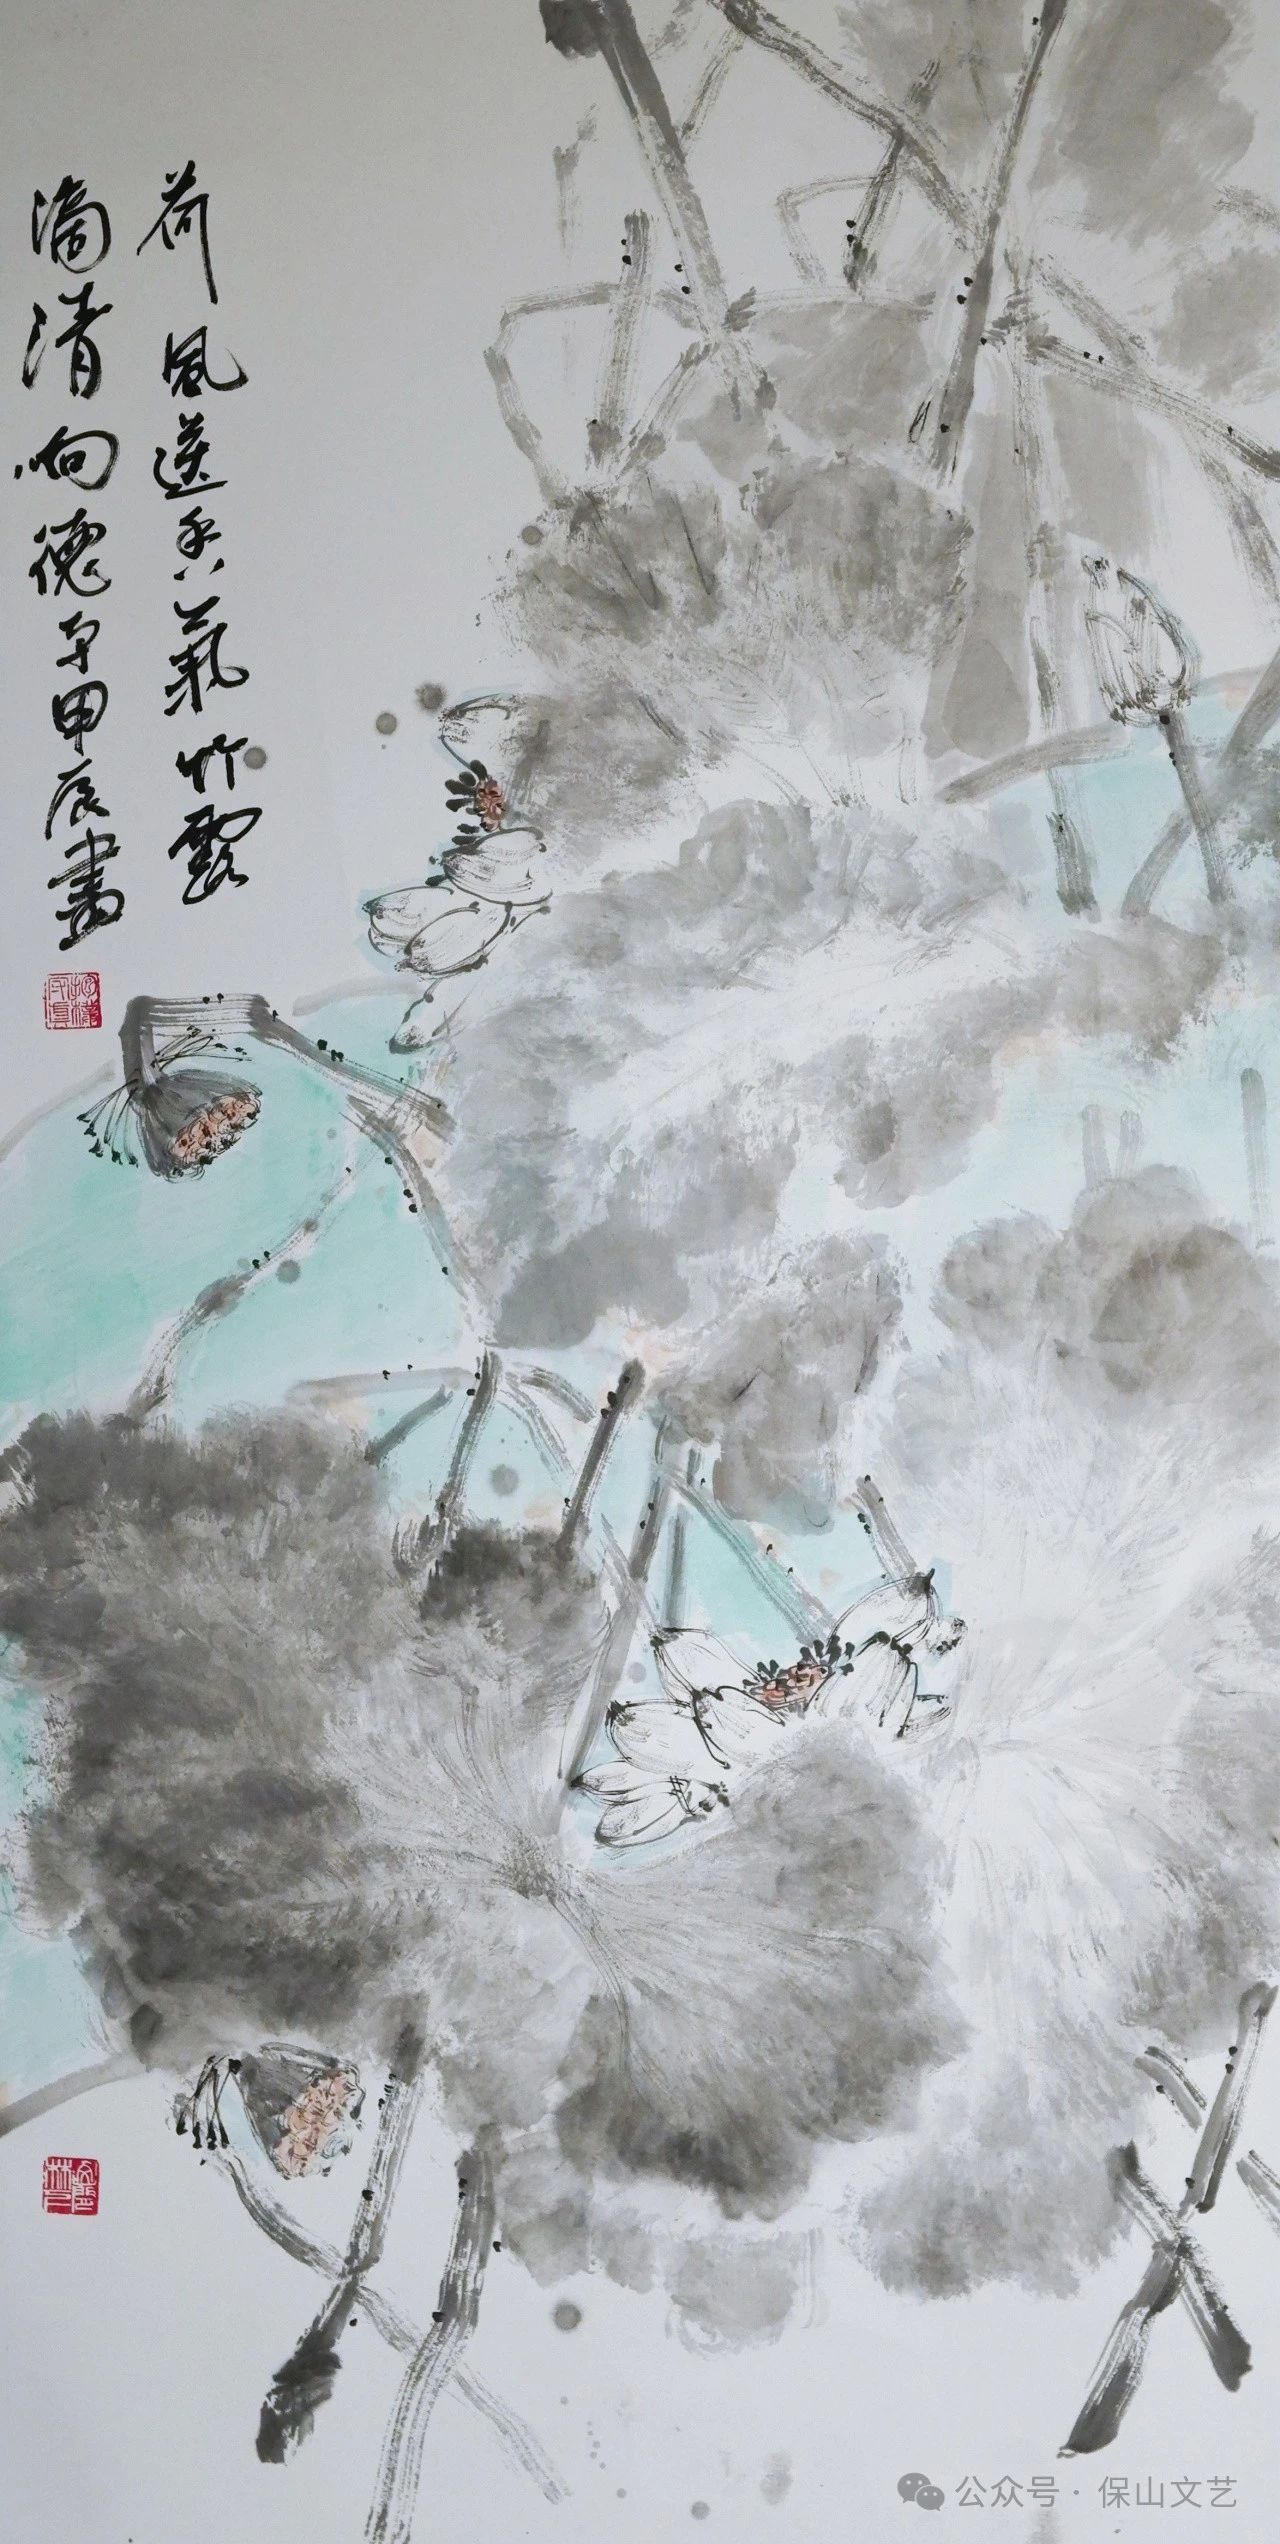 荷风送香氣竹露
滴清响德宇甲辰畫
公众号·保山文艺